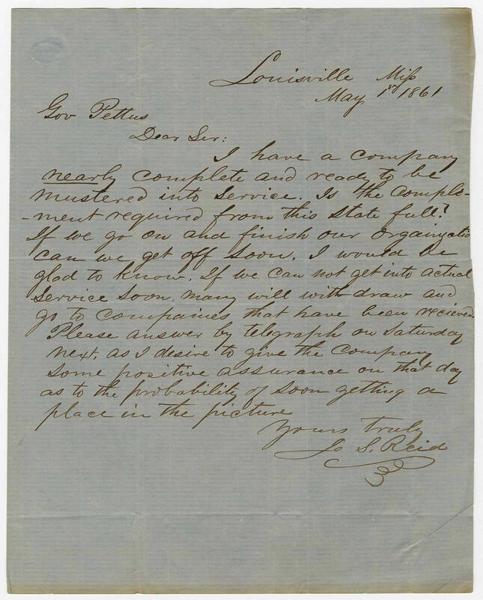 Louisville Miss
May 1st 1861
Gov Pettus
Dear Sir:
I have a company
nearly complete and ready to be
mustered into Service. Is the Comple-
-ment required from this State full?
If we go on and finish our Organizatio
can we get off soon. I would be
glad to know. If we can not get into actual
Service soon many will with draw and
go to Companies that have been received
Please answer by telegraph on Saturday
next. as I desire to give the Company
some positive assurance on that day
as to the probability of soon getting a
place in the picture
Yours truly
Jo S. Reid